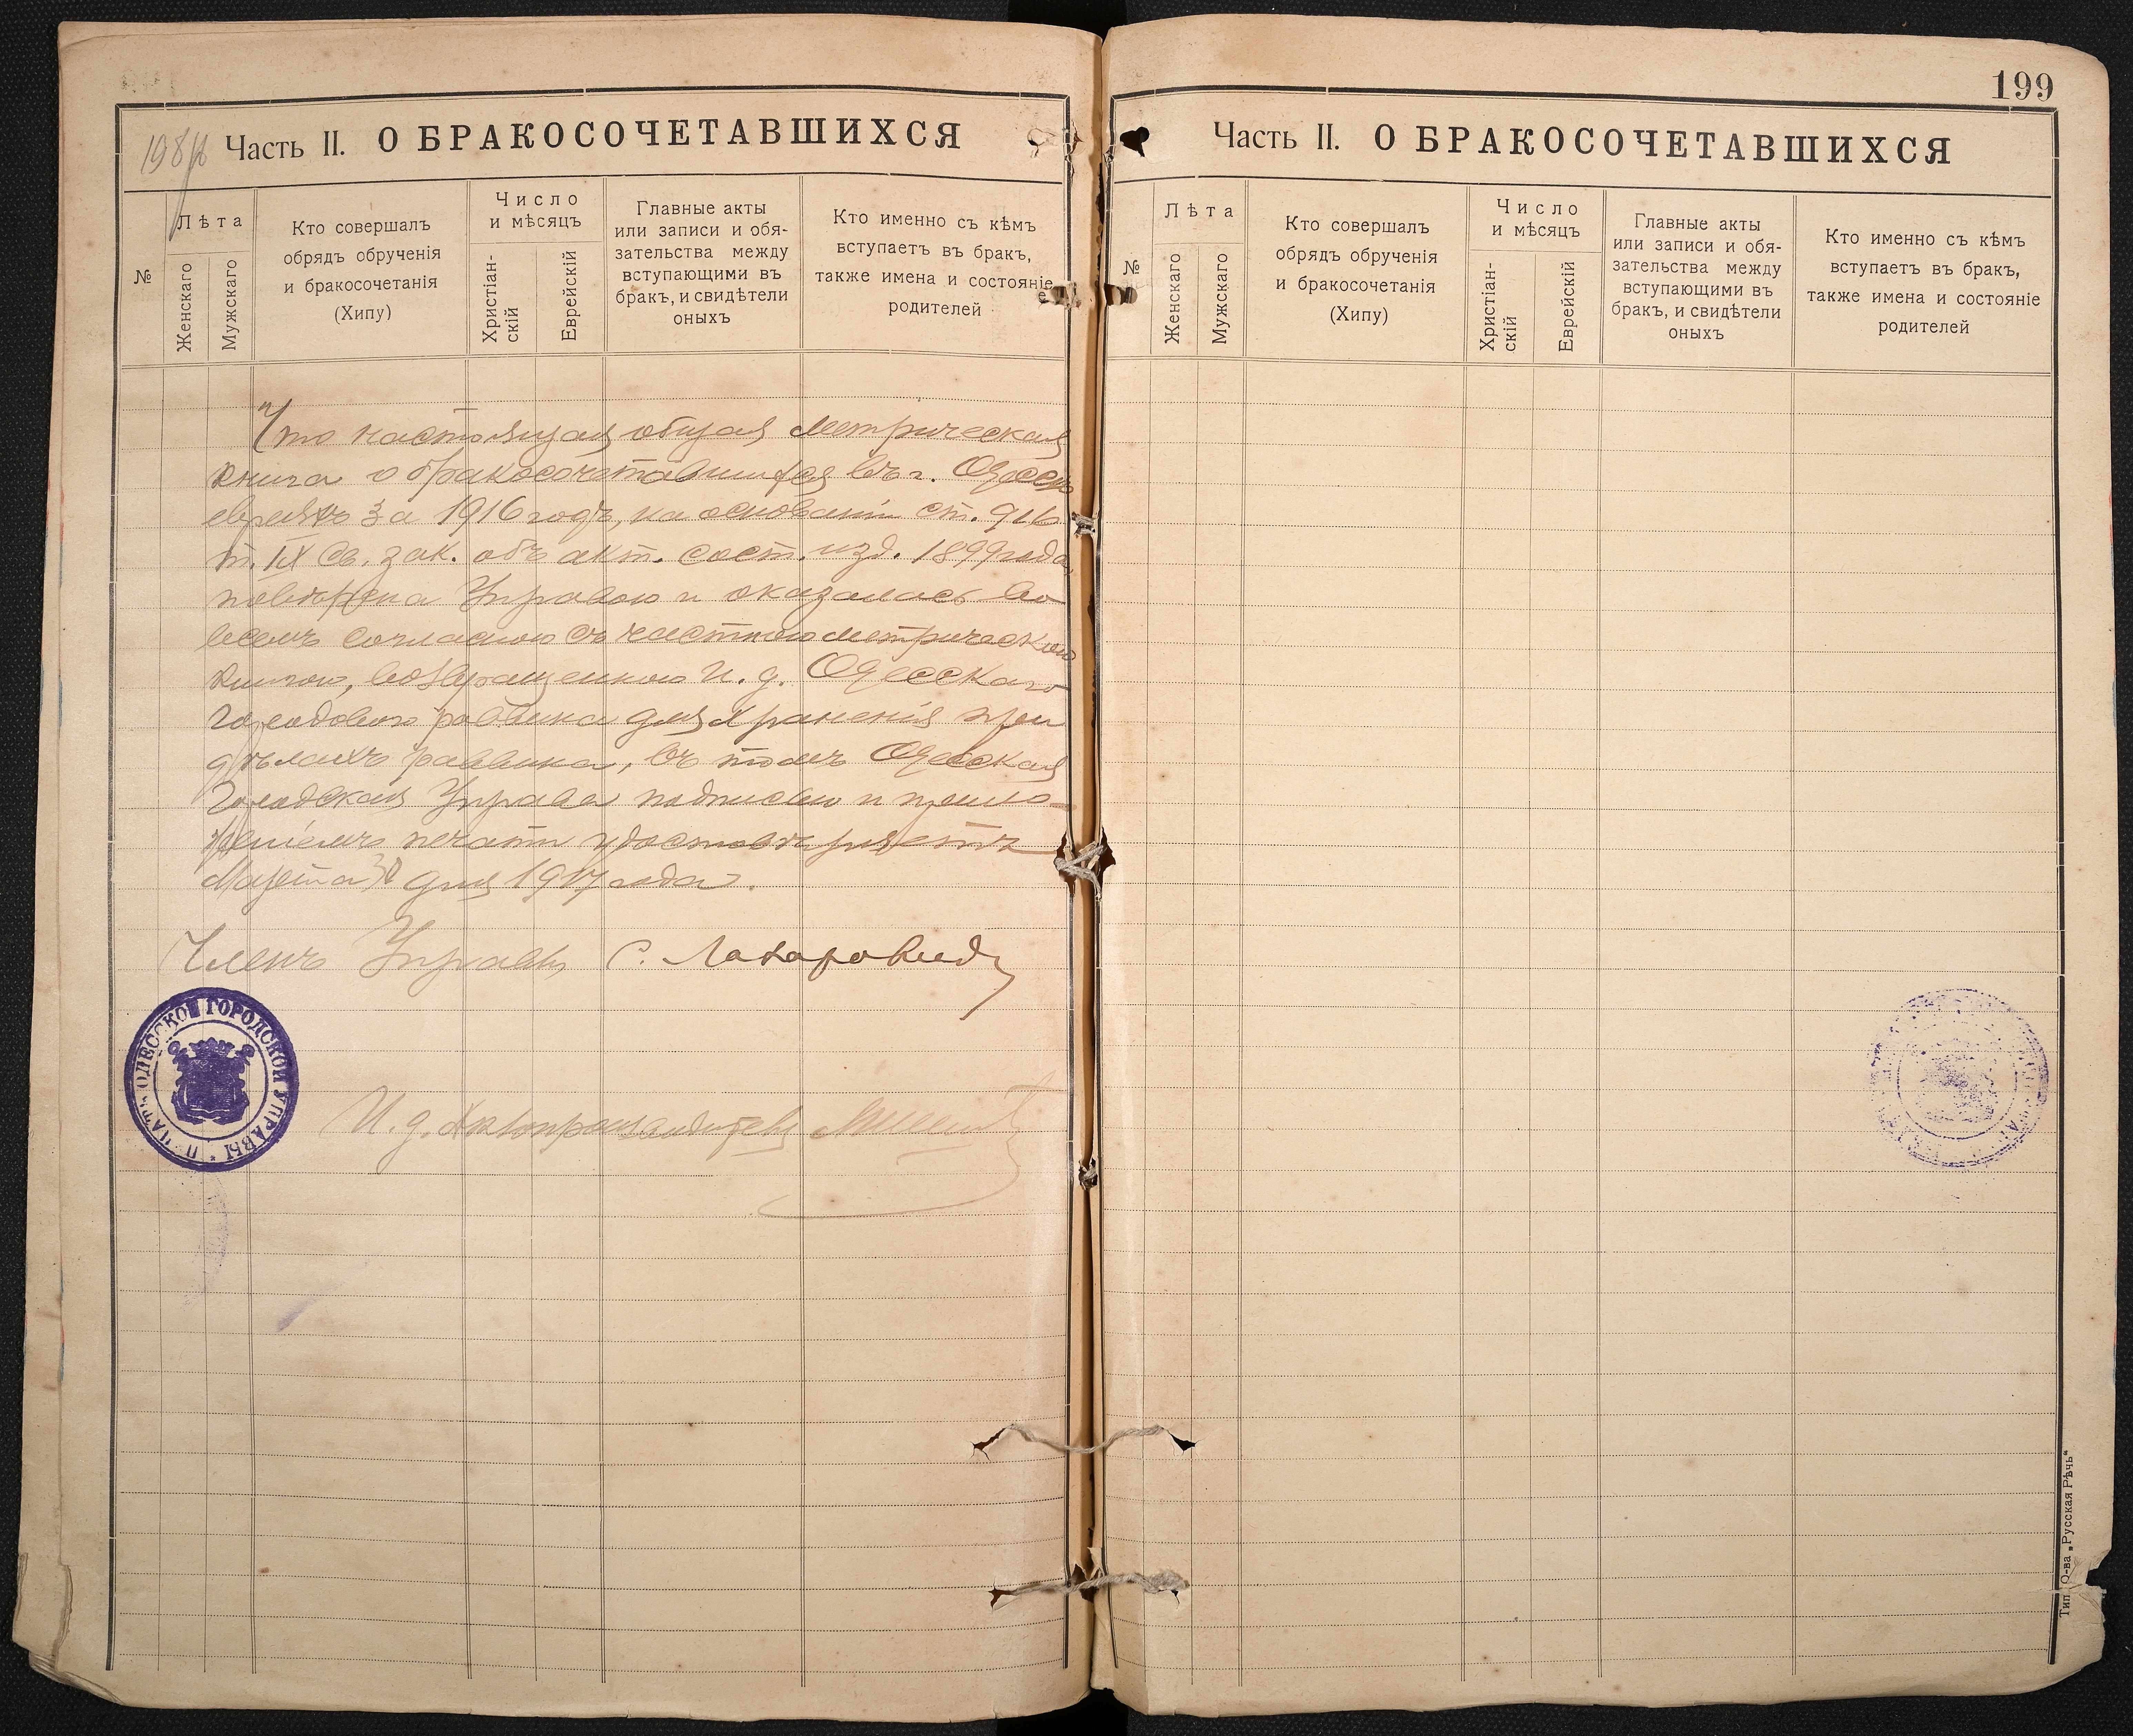 198 об
Часть II. О БРАКОСОЧЕТАВШИХСЯ
№
Лѣта
Женскаго
Мужскаго
Кто совершалъ
обрядъ обрученія
и бракосочетанія
(Хипу)
Число
и мѣсяцъ
Христіан-
скій
Еврейскій
Главные акты
или записи и обя-
зательства между
вступающими въ
бракъ, и свидѣтели
оныхъ
Кто именно съ кѣмъ
вступаетъ въ бракъ,
также имена и состояніе
родителей
Что настоящая общая метрическая
книга о бракосочетавшихся въ г. Одессѣ
евреяхъ за 1916 годъ, на основаніи ст. 916
т. IX Св. зак. объ акт. сост. изд. 1899 года,
повѣрена Управою и оказалась во
всемъ согласною съ частною метрическою
книгою, возвращенною И. д. Одесскаго
Городового раввина для храненія при
дѣлахъ раввина, въ томъ Одесская
Городская Управа подписью и прило-
женіемъ печати удостовѣряетъ
Марта 30 дня 1917 года.
Членъ Управы С. Лазаровичъ
ПЕЧАТЬ ОДЕССКОЙ ГОРОДСКОЙ УПРАВЫ
И. д. Дѣлопроизводителя
199
Часть II. О БРАКОСОЧЕТАВШИХСЯ
№
Лѣта
Женскаго
Мужскаго
Кто совершалъ
обрядъ обрученія
и бракосочетанія
(Хипу)
Число
и мѣсяцъ
Христіан-
скій
Еврейскій
Главные акты
или записи и обя-
зательства между
вступающими въ
бракъ, и свидѣтели
оныхъ
Кто именно съ кѣмъ
вступаетъ въ бракъ,
также имена и состояніе
родителей
Тип. О-ва „Русская Рѣчь“